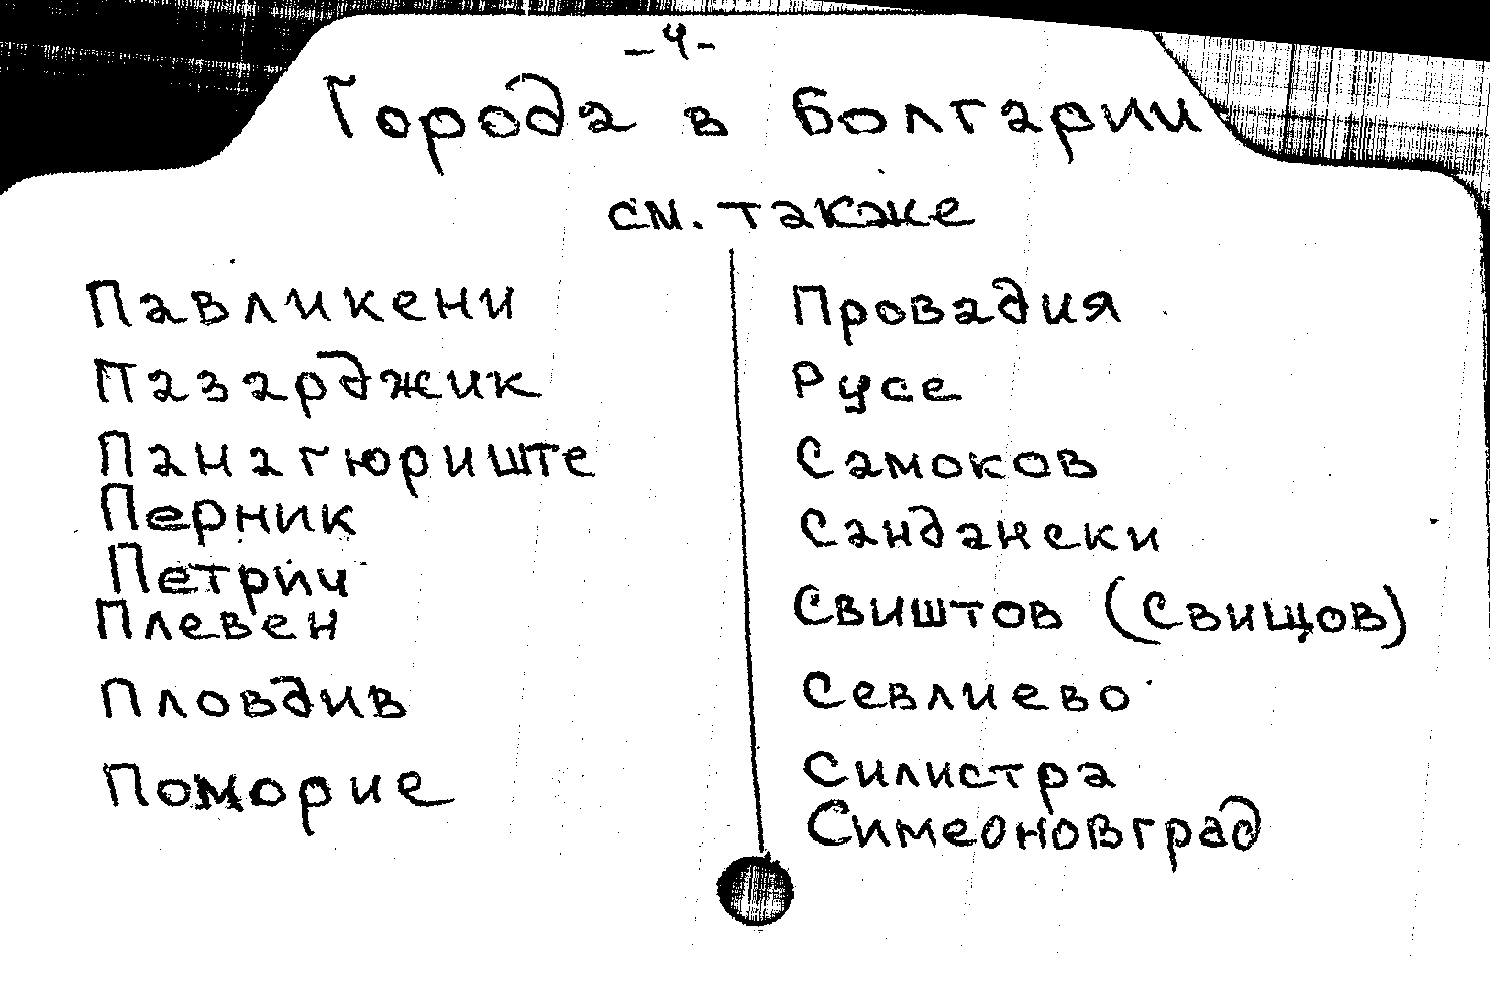 -4-
Города в Болгарии
см. также
Павликени
Пазарджик
Панагюриште
Перник
Петрич
Плевен
Пловдив
Поморие
Провадия
Русе
Самоков
Сандански
Свиштов (Свищов)
Севлиево
Силистра
Симеоновград